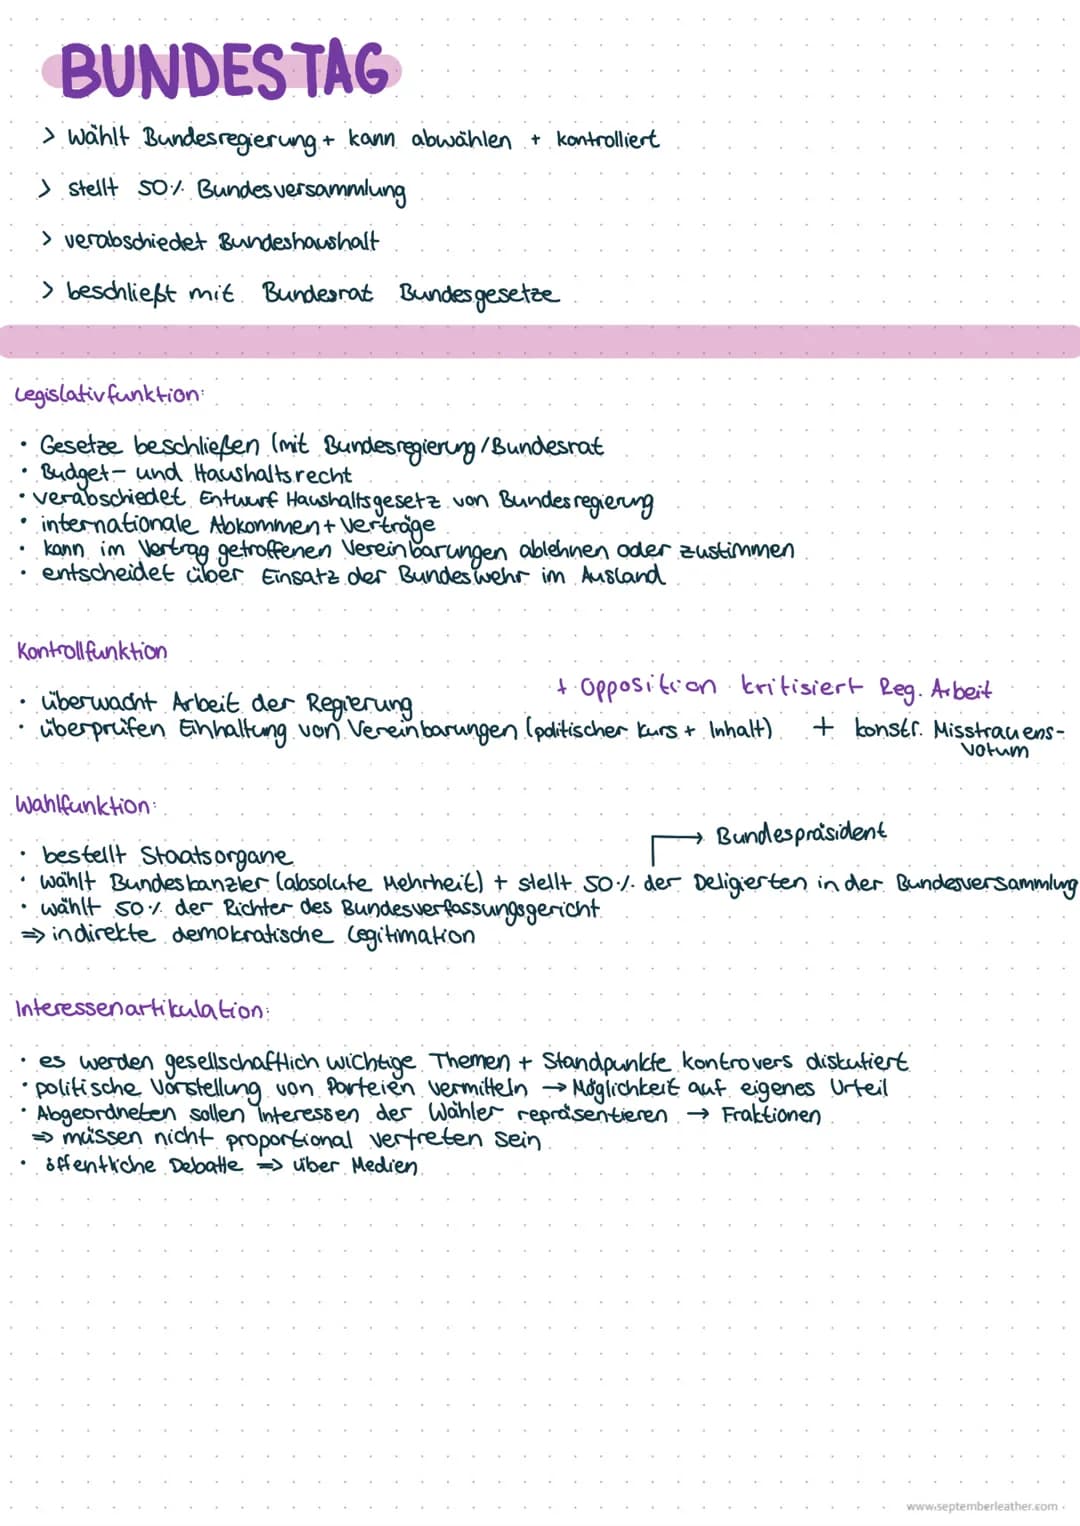 BUNDESTAG
> wählt Bundesregierung + kann abwählen + kontrolliert
> stellt 50% Bundesversammlung
> verabschiedet Bundeshaushalt
> beschließt mit Bundesrat Bundesgesetze
Legislativfunktion:
• Gesetze beschließen (mit Bundesregierung/Bundesrat
• Budget- und Haushaltsrecht
• verabschiedet Entwurf Haushaltsgesetz von Bundesregierung
• internationale Abkommen + Verträge
• kann im Vertrag getroffenen Vereinbarungen ablehnen oder zustimmen
• entscheidet über Einsatz der Bundeswehr im Ausland
Kontrollfunktion
+ Opposition kritisiert Reg. Arbeit
• überwacht Arbeit der Regierung
• überprüfen Einhaltung von Vereinbarungen (politischer Kurs + Inhalt) + konstr. Misstrauens-
votum
Wahlfunktion:
→ Bundespräsident
• bestellt Staatsorgane
• wählt Bundeskanzler (absolute Mehrheit) + stellt 50% der Deligierten in der Bundesversammlung
• wählt 50% der Richter des Bundesverfassungsgericht
⇒ indirekte demokratische Legitimation
Interessenartikulation:
• es werden gesellschaftlich wichtige Themen + Standpunkte kontrovers diskutiert
• politische Vorstellung von Parteien vermitteln → Möglichkeit auf eigenes Urteil
• Abgeordneten sollen Interessen der Wähler repräsentieren → Fraktionen
⇒ müssen nicht proportional vertreten sein
• öffentliche Debatte ⇒ über Medien
www.septemberleather.com